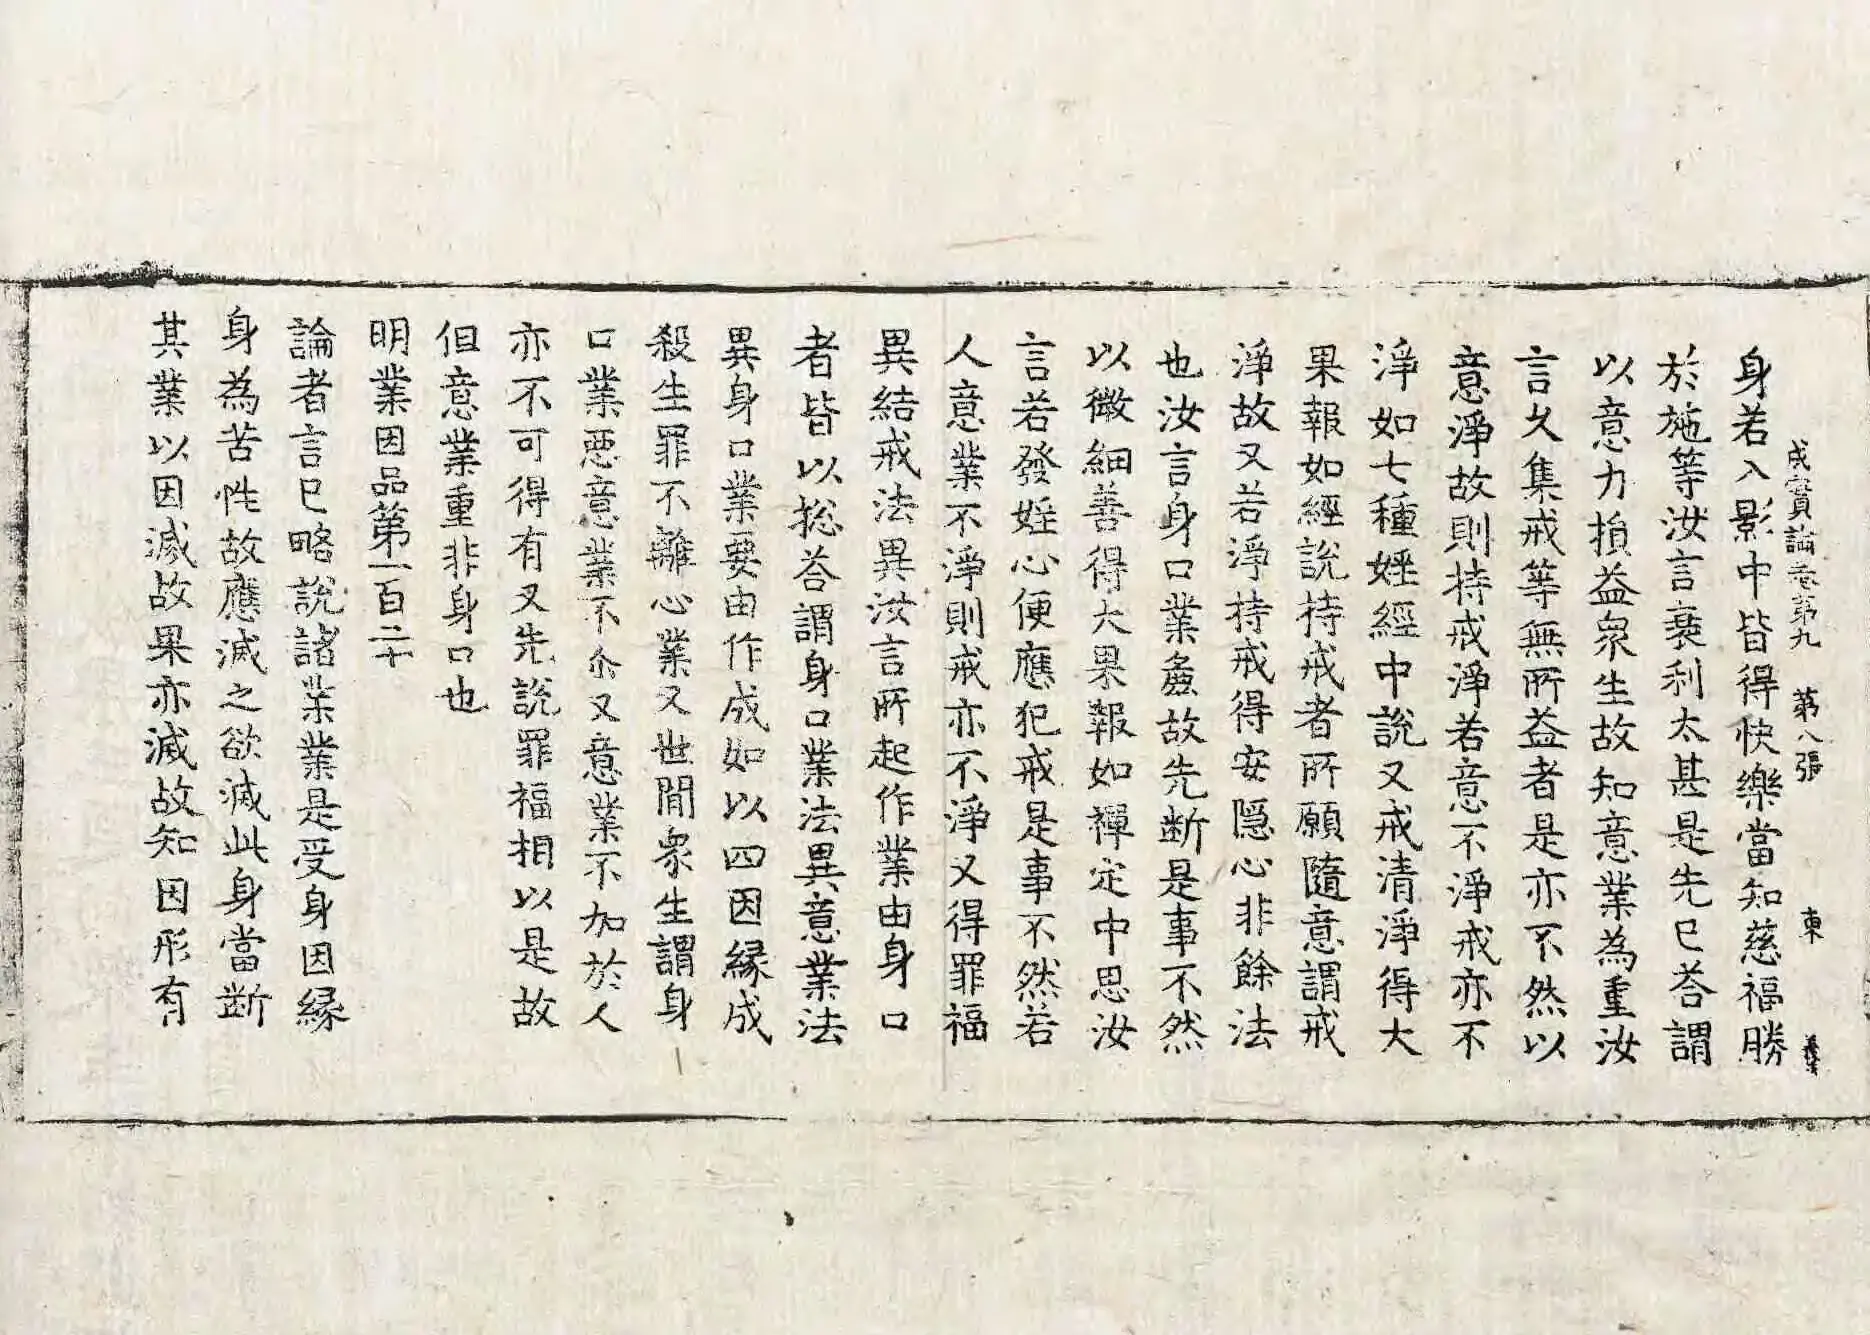 成實論卷第九 第八張 東
身若入影中皆得快樂當知慈福勝
於施等汝言衰利太甚是先已荅謂
以意力損益眾生故知意業為重汝
言久集戒等無所益者是亦不然以
意淨故則持戒淨若意不淨戒亦不
淨如七種婬經中說又戒清淨得大
果報如經說持戒者所願隨意謂戒
淨故又若淨持戒得安隱心非餘法
也汝言身口業麁故先断是事不然
以微細善得大果報如禪定中思汝
言若發婬心便應犯戒是事不然若
人意業不淨則戒亦不淨又得罪福
異結戒法異汝言所起作業由身口
者皆以捴荅謂身口業法異意業法
異身口業要由作成如以四因緣成
殺生罪不離心業又世間眾生謂身
口業惡意業不尒又意業不加於人
亦不可得有又先說罪福相以是故
但意業重非身口也
明業因品第一百二十
論者言已略說諸業業是受身因緣
身為苦性故應滅之欲滅此身當断
其業以因滅故果亦滅故如因形有